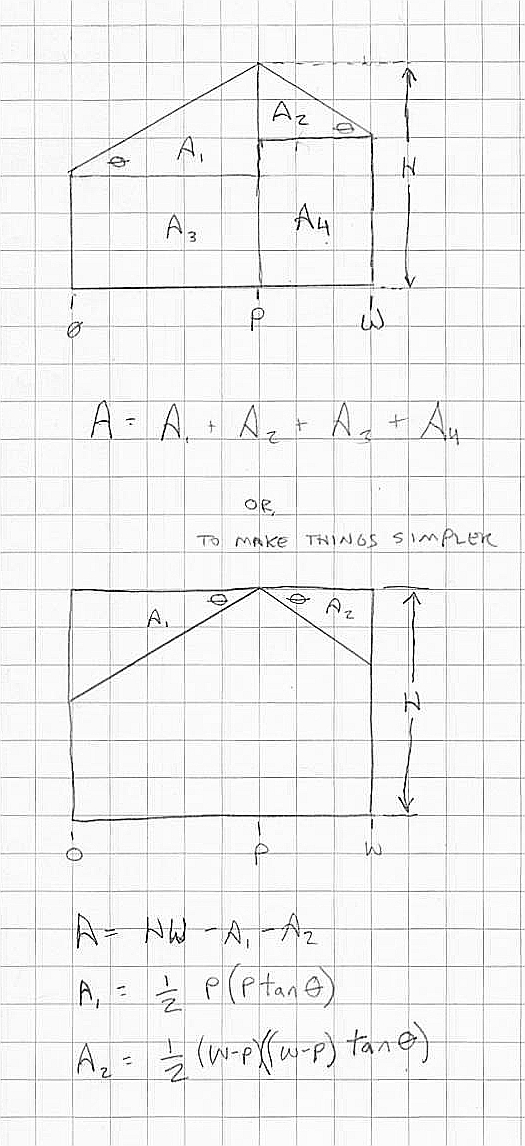 A₂
θ
θ A₁
H
A₃ A₄
0 P W
A = A₁ + A₂ + A₃ + A₄
OR,
TO MAKE THINGS SIMPLER
θ θ A₂
A₁
H
0 P W
A = HW - A₁ - A₂
A₁ = 1/2 P(P tan θ)
A₂ = 1/2 (W-P)((W-P) tan θ)